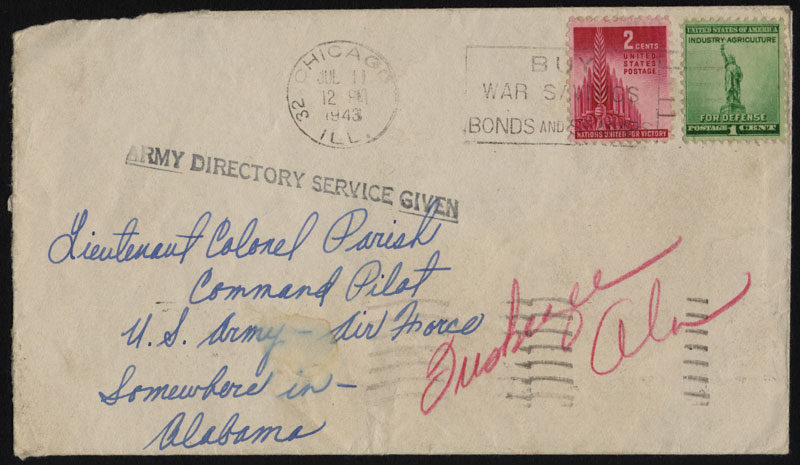 CHICAGO
32
JUL 11
12 PM
1943
ILL.
BUY
WAR SAVINGS
BONDS AND STAMPS
2 CENTS
UNITED
STATES
POSTAGE
NATIONS UNITED FOR VICTORY
UNITED STATES OF AMERICA
INDUSTRY-AGRICULTURE
FOR DEFENSE
POSTAGE 1 CENT
ARMY DIRECTORY SERVICE GIVEN
Lieutenant Colonel Parish
Command Pilot
U.S. Army - Air Force
Somewhere in -
Alabama
Tuskegee
Ala